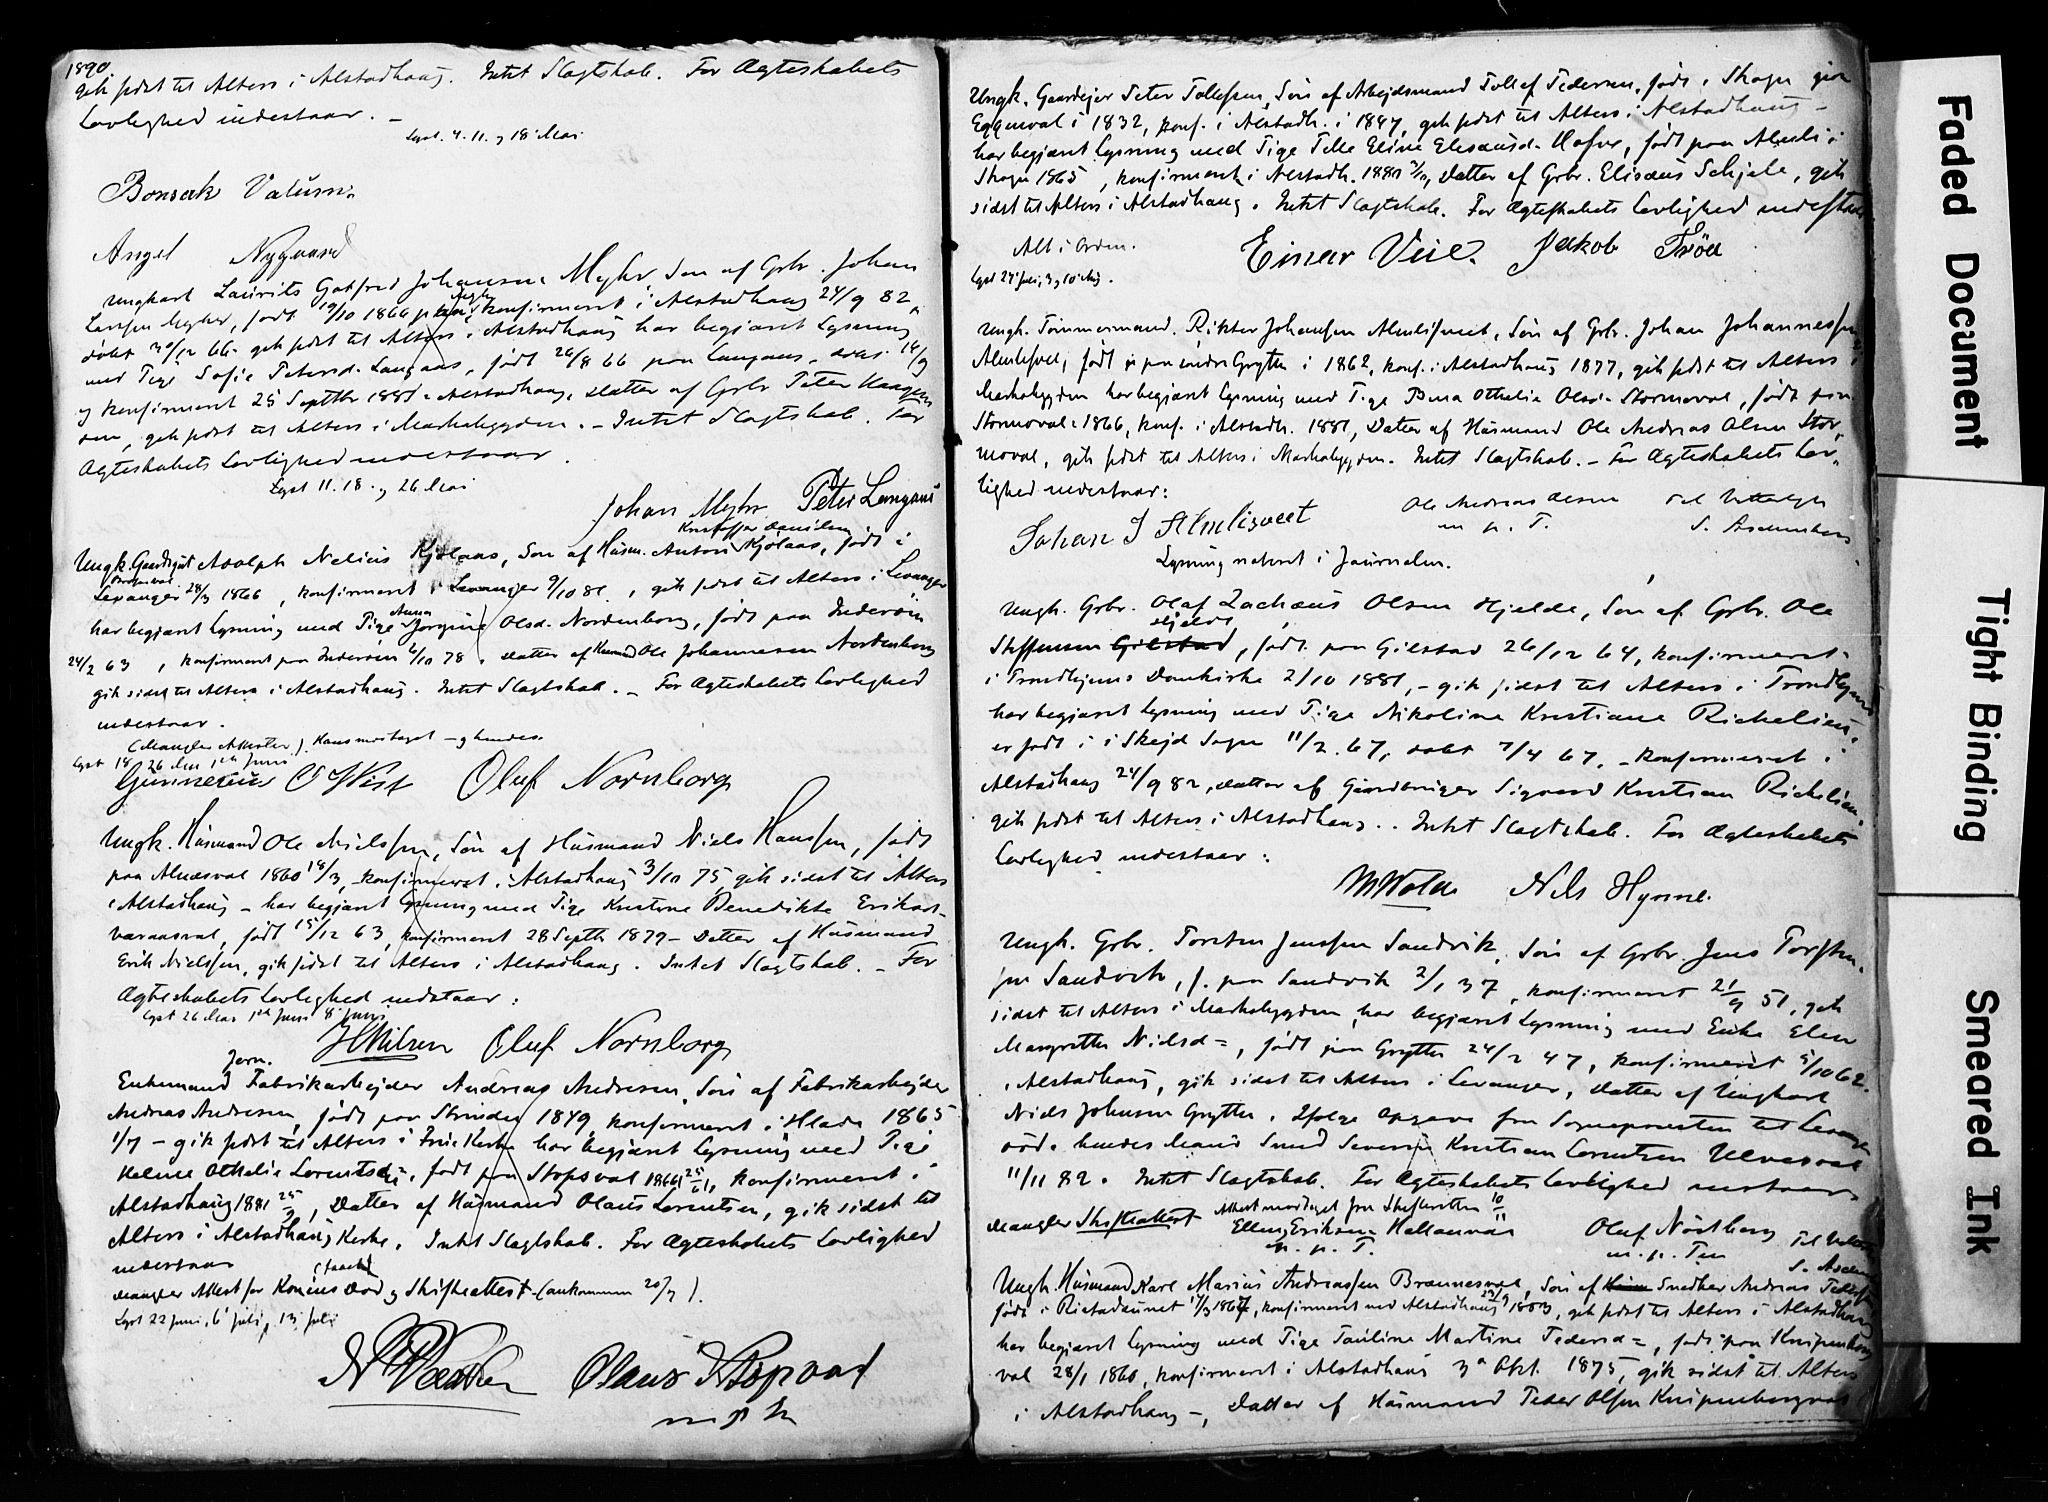 1890
gik sidst til Alters i Alstadhaug. Intet Slagtskab. For Ægteskabets
Lovlighed indestaar. –
Lyst. 4. 11. og 18 Mai
Bonsak Valum
Angel Nygaard
Ungkarl Laurits Gotfred Johansen Myhr, Søn af Grbr. Johan
Larssen Myhr, født 19/10 1866 paa Myhr konfirmeret i Alstadhaug 24/9 82,
døbt 30/12 66. gik sidst til Alters i Alstadhaug har begjæret Lysning
med Pige Sofie Petersd. Langaas, født 26/8 66 paa Langaas, døbt 14/9
og konfirmeret 25 Septbr 1881 i Alstadhaug, Datter af Grbr Peter Haagen
sen, gik sidst til Alters i Markabygden. – Intet Slagtskab. For
Ægteskabets Lovlighed indestaar.
Lyst 11. 18. og 26 Mai
Johan Myhr Peter Langaas
Kristoffer Danilsen
Ungk. Gaardsgut Adolph Nelius Kjølaas, Søn af Husm. Anton Kjølaas, født i
Levanger 28/3 1866, konfirmeret i Levanger 9/10 81, gik sidst til Alters i Levanger
har begjæret Lysning med Pige Anna Jørgine Olsd. Nordenborg, født paa Inderøen
24/2 63, konfirmeret paa Inderøen 6/10 78. Datter af Husmand Ole Johannesen Nordenborg
gik sidst til Alters i Alstadhaug. Intet Slagtskab. – For Ægteskabets Lovlighed
indestaar.
(Mangler Attester). Hans modtaget – og hendes.
Lyst 18. 26 Mai 1ste Juni
Gunnerius O Vist Oluf Nornborg
Ungk. Husmand Ole Nielssen, Søn af Husmand Niels Hanssen, født
paa Alnæsval 1860 18/3, konfirmeret i Alstadhaug 3/10 75, gik sidst til Alters
i Alstadhaug – har begjæret Lysning med Pige Kristine Benedikte Eriksd.
væraasval, født 15/12 63, konfirmeret 28 Septbr 1879 – Datter af Husmand
Erik Nielssen, gik sidst til Alters i Alstadhaug. Intet Slagtskab. – For
Ægteskabets Lovlighed indstaar:
Lyst 26 Mai 1ste Juni 8 Juni
H Nilsen Oluf Nornborg
Jern.
Enkemand Fabrikarbejder Andreas Andresen, Søn af Fabrikarbejder
Andreas Andresen, født paa Strinden 1849, konfirmeret i Hlade 1865
1/7 – gik sidst til Alters i Frue Kirke har begjæret Lysning med Pige
Helene Othelie Lorentsd., født paa Stopsval 1866, konfirmeret i
Alstadhaug 1881 25/9, Datter af Husmand Olaus Lorentsen, gik sidst til
Alters i Alstadhaug Kirke. Intet Slagtskab. For Ægteskabets Lovlighed
indestaar
Mangler Attest for Konens Død og Skifteattest – (ankommen 20/7).
Lyst 22 Juni, 6 Juli, 13 Juli
Olaus Stopvoal
m p P
Ungk. Gaardejer Peter Tollefsen, Søn af Arbejdsmand Tollef Pedersen, født i Skogn paa
Eggenval i 1832, konf. i Alstadh. i 1847, gik sidst til Alters i Alstadhaug –
har begjæret Lysning med Pige Eline Elisæusd. Hafve, født paa Almli i
Skogn 1865, konfirmeret i Alstadh. 1881 2/10, Datter af Grbr. Elisæus Schjele, gik
sidst til Alters i Alstadhaug. Intet Slagtskab. For Ægteskabets Lovlighed indestaar
Alt i Orden.
Lyst 27 Juli, 3 og 10 Aug.
Einar Veie. Jakob Trøa
Ungk. Tømmermand. Rikter Johansen Almlisveet, Søn af Grbr. Johan Johannessen
Almlisvet, født paa indre Grytte i 1862, konf. i Alstadhaug 1877, gik sidst til Alters i
Markabygden har begjæret Lysning med Pige Bina Othelie Olsd. Stormoval, født paa
Stormoval i 1866, konf. i Alstadh. 1881, Datter af Husmand Ole Andreas Olsen Stor,
moval, gik sidst til Alters i Markabygden. Intet Slagtskab. – For Ægteskabets Lov,
lighed indestaar:
Johan J Almlisveet
Ole Andreas Olsen
m. p. P.
Til Vitterlighed
S. Aschenberg
Lysning noteret i Journalen.
Ungk. Grbr. Olaf Zachæus Olsen Hjelde, Søn af Grbr. Ole
Hjelde
Steffensen Gilstad, født paa Gilstad 26/12 64, konfirmeret
i Trondhjems Domkirke 2/10 1881, – gik sidst til Alters i Trondhjem
har begjæret Lysning med Pige Nikoline Kristiane Richelieu.
er født i Skejd Sogn 11/2 67, døbt 7/4 67. – konfirmeret i
Alstadhaug 24/9 82, Datter af Gaardbruger Sigvard Kristian Richelieu,
gik sidst til Alters i Alstadhaug. Intet Slagtskab. For Ægteskabets
Lovlighed indestaar:
M Wold Nils Hynne.
Ungk. Grbr. Torsten Jenssen Sandvik, Søn af Grbr. Jens Torsten,
sen Sandvik, f. paa Sandvik 2/1 37, konfirmeret 21/9 51, gik
sidst til Alters i Markabygden, har begjæret Lysning med Enke Elen
Margrethe Nielsd=, født paa Grytte 24/2 47, konfirmeret 5/10 62.
i Alstadhaug, gik sidst til Alters i Levanger, Datter af Ungkarl
Niels Johnsen Grytte. Ifølge Opgave fra Sognepresten til Levanger
død. hendes Mand Smed Severin Kristian Lorentsen Ulvesval
11/11 82. Intet Slagtskab. For Ægteskabets Lovlighed indestaar
Mangler Skifteattest Attest modtaget fra Skifteretten 10/11
Elling Eriksen Hallanvær
m. p. P.
Oluf Nøstberg
m. p. Pen
Til Vitterl
S. Aschen
Ungk. Husmand Karl Marius Andreassen Brænnesval, Søn af Snedker Andreas Peders
født i Ristadaunet 17/3 1867, konfirmeret ved Alstadhaug 23/9 1883, gik sidst til Alters i Alstadhaug
har begjæret Lysning med Pige Pauline Martine Pedersd=, født paa Knipenborg
val 28/1 1860, konfirmeret i Alstadhaug 3die Okt. 1875, gik sidst til Alters
i Alstadhaug –, Datter af Husmand Peder Olsen Knipenborgval
Faded Document
Tight Binding
Smeared Ink